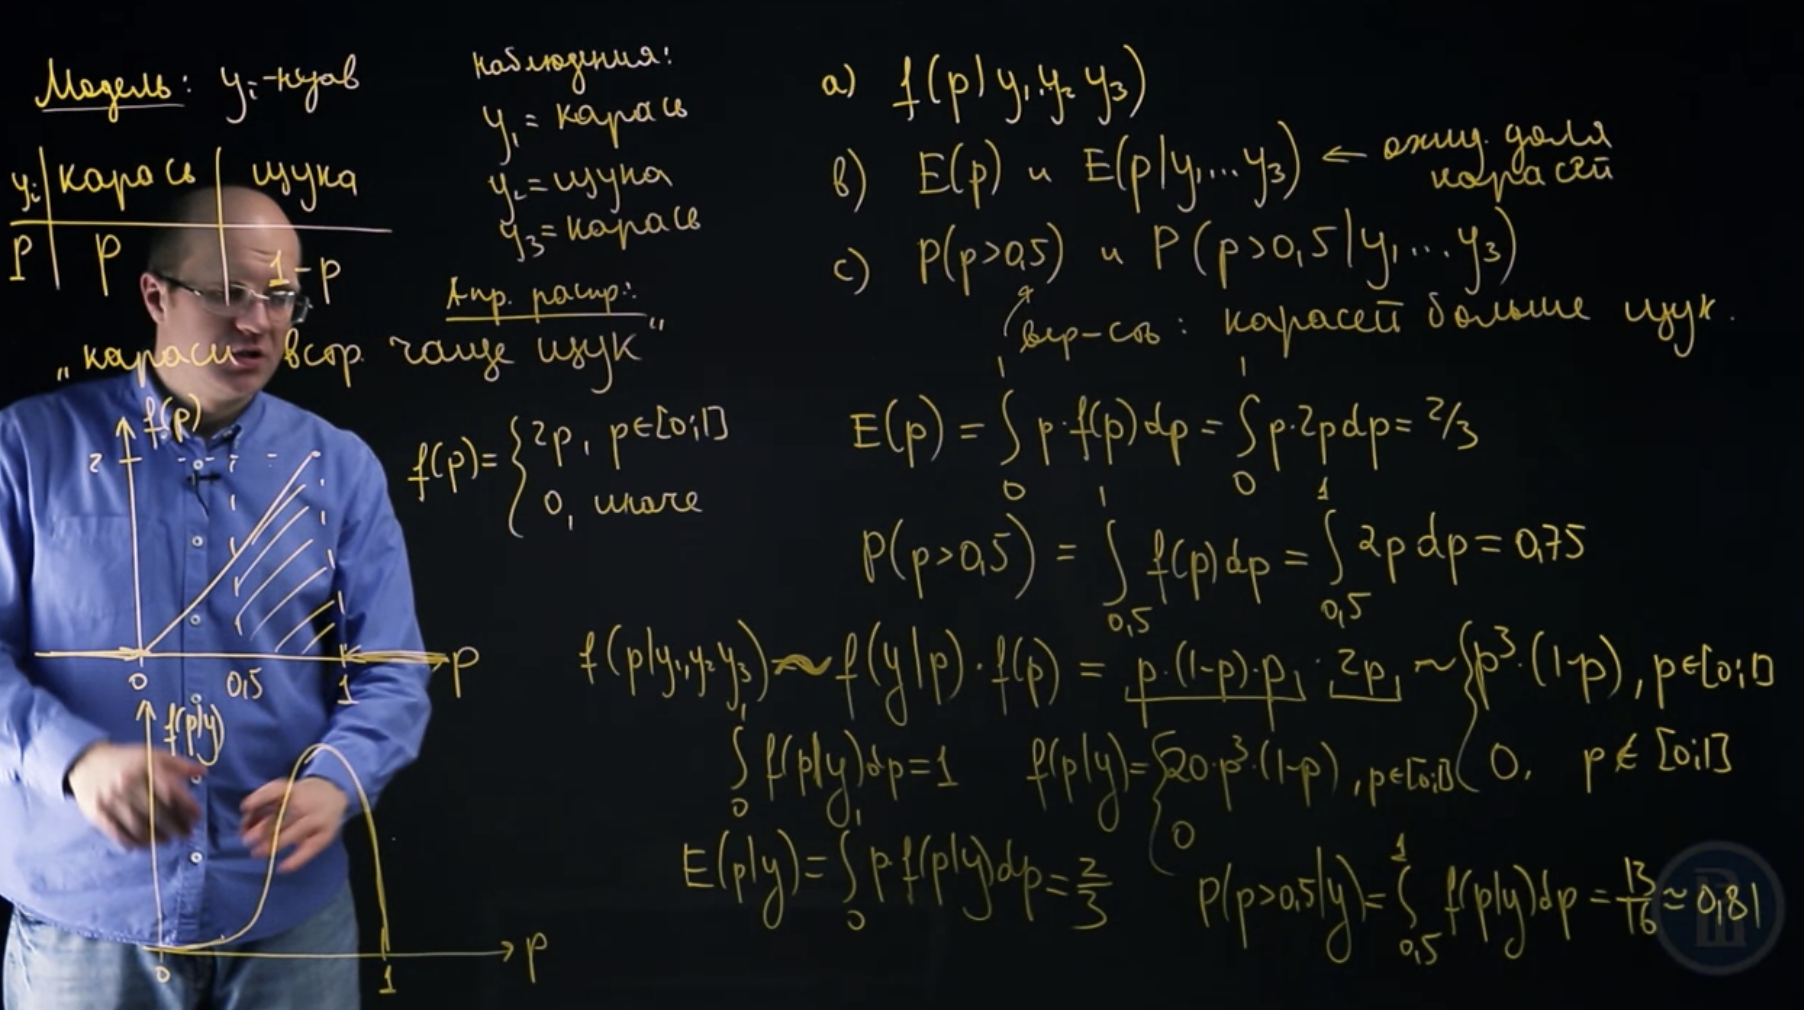 Модель: yᵢ - независ
yᵢ | карась | щука
P | p | 1-p
наблюдения:
y₁ = карась
y₂ = щука
y₃ = карась
Апр. распр.:
„караси встр. чаще щук"
f(p)
2
0 0,5 1 p
f(p) = { 2p, p∈[0;1]
0, иначе
f(p|y)
0 1 p
a) f(p|y₁,y₂ y₃)
b) E(p) и E(p|y₁,... y₃) ← ожид. доля
карасей
c) P(p>0,5) и P(p>0,5|y₁,... y₃)
вер-сть: карасей больше щук.
E(p) = ∫₀¹ p·f(p)dp = ∫₀¹ p·2pdp = 2/3
P(p>0,5) = ∫₀,₅¹ f(p)dp = ∫₀,₅¹ 2pdp = 0,75
f(p|y₁y₂y₃) ~ f(y|p)·f(p) = p·(1-p)·p · 2p ~ { p³·(1-p), p∈[0;1]
0, p∉[0;1]
∫₀¹ f(p|y)dp = 1 f(p|y) = { 20·p³·(1-p), p∈[0;1]
0
E(p|y) = ∫₀¹ p f(p|y)dp = 2/3 P(p>0,5|y) = ∫₀,₅¹ f(p|y)dp = 13/16 ≈ 0,81